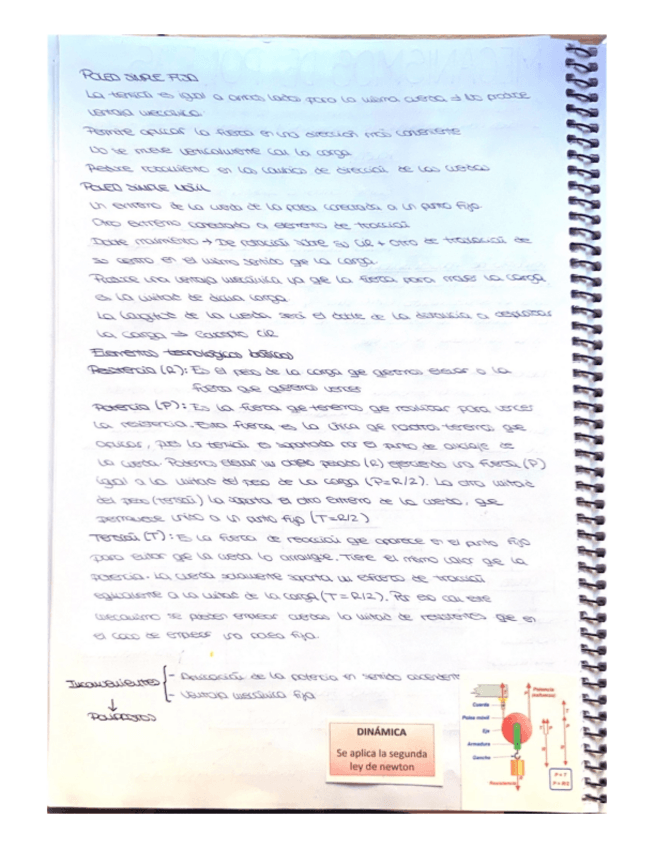 POLEA SIMPLE FIJA
La tensión es igual a ambos lados para la misma cuerda → No produce
ventaja mecánica.
Permite aplicar la fuerza en una dirección más conveniente
No se mueve verticalmente con la carga
Reduce rozamiento en los cambios de dirección de las cuerdas
POLEA SIMPLE MÓVIL
Un extremo de la cuerda de la polea conectada a un punto fijo
Otro extremo conectado a elemento de tracción
Doble movimiento → De rotación sobre su CIR + Otro de traslación de
su centro en el mismo sentido qe la carga.
Produce una ventaja mecánica ya qe la fuerza para mover la carga
es la mitad de dicha carga.
La longitud de la cuerda será el doble de la distancia a desplazar
la carga → Concepto CIR
Elementos tecnológicos básicos
Resistencia (R): Es el peso de la carga qe queremos elevar o la
fuerza que queremos vencer
Potencia (P): Es la fuerza qe tenemos qe realizar para vencer
la resistencia. Esta fuerza es la única qe nosotros tenemos que
aplicar, pues la tensión es soportada por el punto de anclaje de
la cuerda. Podemos elevar un objeto pesado (R) ejerciendo una fuerza (P)
igual a la mitad del peso de la carga (P=R/2). La otra mitad
del peso (tensión) la soporta el otro extremo de la cuerda, que
permanece unido a un punto fijo (T=R/2)
Tensión (T): Es la fuerza de reacción qe aparece en el punto fijo
para evitar qe la cuerda lo arranque. Tiene el mismo valor qe la
potencia. La cuerda solamente soporta un esfuerzo de tracción
equivalente a la mitad de la carga (T=R/2). Por eso con este
mecanismo se pueden emplear cuerdas la mitad de resistentes qe en
el caso de emplear una polea fija.
Inconvenientes
- Aplicación de la potencia en sentido ascendente
- Ventaja mecánica fija
↓
POLIPASTOS
DINÁMICA
Se aplica la segunda
ley de newton
Potencia
(esfuerzo)
Cuerda
Polea móvil
Eje
Armadura
Gancho
Resistencia
P = T
P = R/2